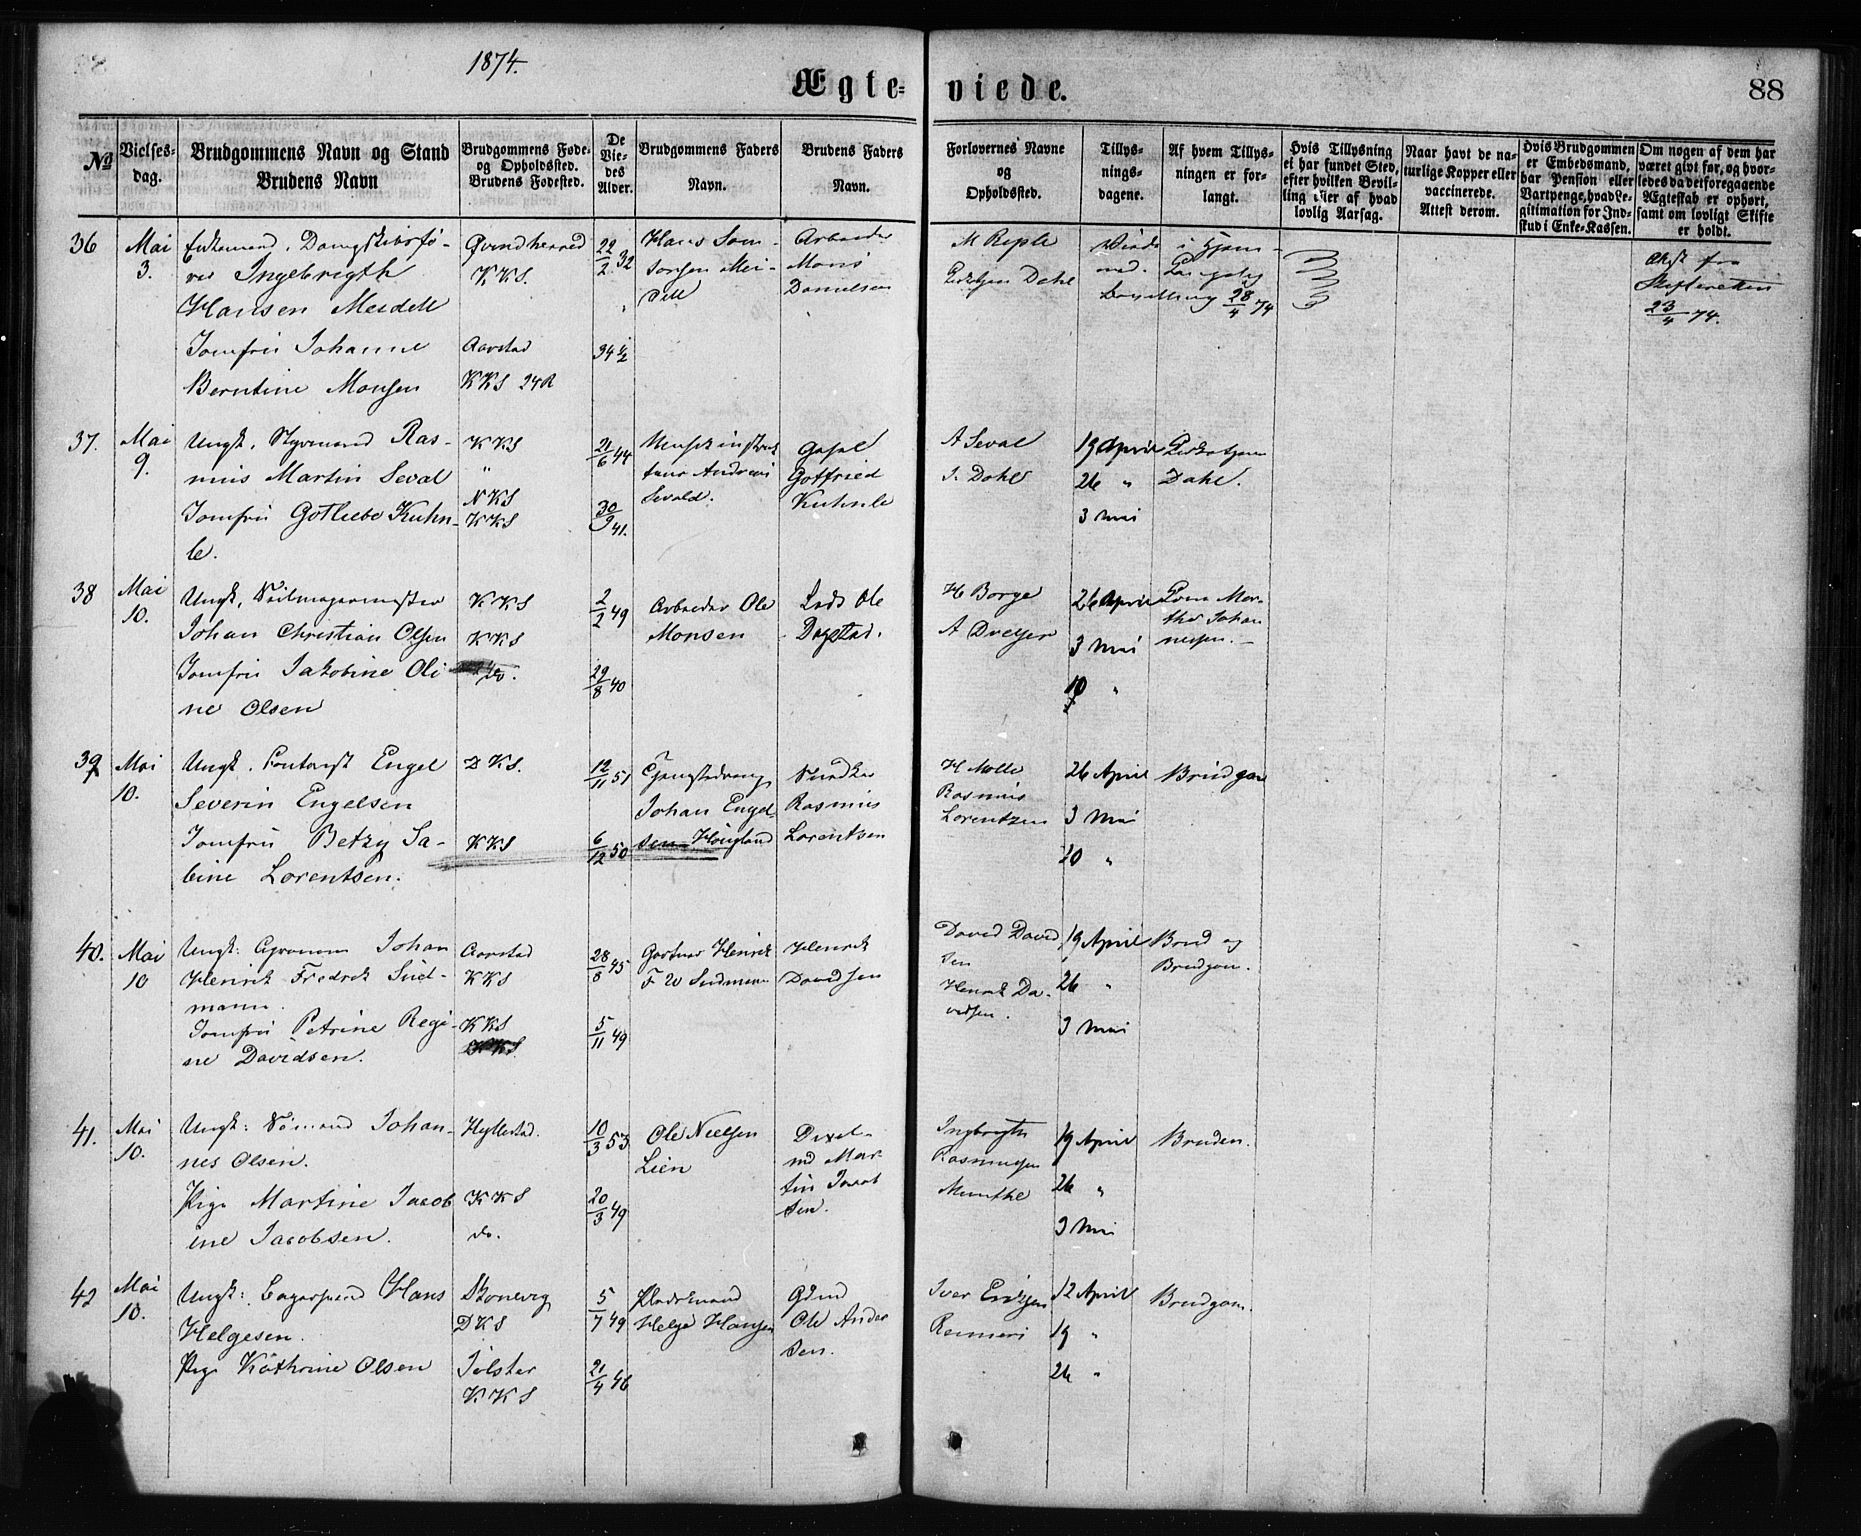 1874.
Ægte=
viede.
88
No
Vielses-
dag.
Brudgommens Navn og Stand
Brudens Navn
Brudgommens Føde-
og Opholdssted.
Brudens Fødested.
De
Vie-
des
Alder.
Brudgommens Faders
Navn.
Brudens Faders
Navn.
Forlovernes Navne
og
Opholdssted.
Tillys-
nings-
dagene.
Af hvem Tillys-
ningen er for-
langt.
Hvis Tillysning
ei har fundet Sted,
efter hvilken Bevil-
ling eller af hvad
lovlig Aarsag.
Naar havt de na-
turlige Kopper eller
vaccinerede.
Attest derom.
Hvis Brudgommen
er Embedsmand,
har Pension eller
Vartpenge, hvad Le-
gitimation for Ind-
skud i Enke-Kassen.
Om nogen af dem har
været givt før, og hvor-
ledes da det foregaaende
Ægteskab er ophørt,
samt om lovligt Skifte
er holdt.
36
Mai
3.
Enkemand, Dampskibsfø-
rer Ingebrigth
Hansen Meidell
Jomfru Johanne
Berntine Monsen
Qvindherred
KKS.
Aarstad
KKS 24R
22/2 32
34 1/2
Hans
Meidell
Arbeider
Mons
Danielsen
M Reple
Dahl
28/4 74
Attest fra
Skifteretten
23/4 74.
37.
Mai
9.
Ungk. Styrmand Ras-
mus Martin Seval
Jomfru Gotliebe Kuhn-
le.
KKS
"
NKS
KKS
21/6 44
30/9 41.
Andreas
Sevald.
Gotfried
Kuhnle
A Seval
J. Dahl
19 April
26 "
3 Mai
Dahl.
38
Mai
10.
Ungk. Seilmagermester
Johan Christian Olsen
Jomfru Jakobine Oli
ne Olsen
KKS
KKS
do.
2/2 49
29/8 40
Arbeider Ole
Monsen
Lods Ole
Dagstad.
H Borge
A Dreyer
26 April
3 Mai
10 "
Johan
nessen.
39
Mai
10.
Ungk. Contorist Engel
Severin Engelsen
Jomfru Betzy Sa-
bine Lorentsen.
DKS.
KKS
12/11 51
6/12 50
Johan Engel-
sen Hougland
Snedker
Rasmus
Lorentsen
H Molle
Rasmus
Lorentzen
26 April
3 Mai
10 "
Brudgom
40.
Mai
10
Ungk: Agronom Johan
Henrik Fredrik Sud-
mann.
Jomfru Petrine Regi-
ne Davidsen.
Aarstad
KKS
KKS
28/8 45
5/11 49
Gartner Henrik
F W Sudmann
Henrik
Davidsen
David David
sen
Henrik Da-
vidsen.
19 April
26 "
3 Mai
Brud og
Brudgom.
41.
Mai
10.
Ungk: Sømand Johan-
nes Olsen.
Pige Martine Jacob
ine Jacobsen.
Hyllestad.
KKS
do.
10/3 53
20/3 49
Ole Nielsen
Lien
Mar
tin Jacob
sen.
Ingbrigth
Rasmussen
Munthe
19 April
26 "
3 Mai
Bruden.
42
Mai
10.
Ungk: Hans
Helgesen.
Pige Kathrine Olsen
Skonevig
DKS
Jølster
KKS
5/7 49
21/4 46
Pladsmand
Helge Hansen
Gdmd
Ole Ander
sen.
Iver Eriksen
Remmeri
12 April
19 "
26 "
Brudgom.